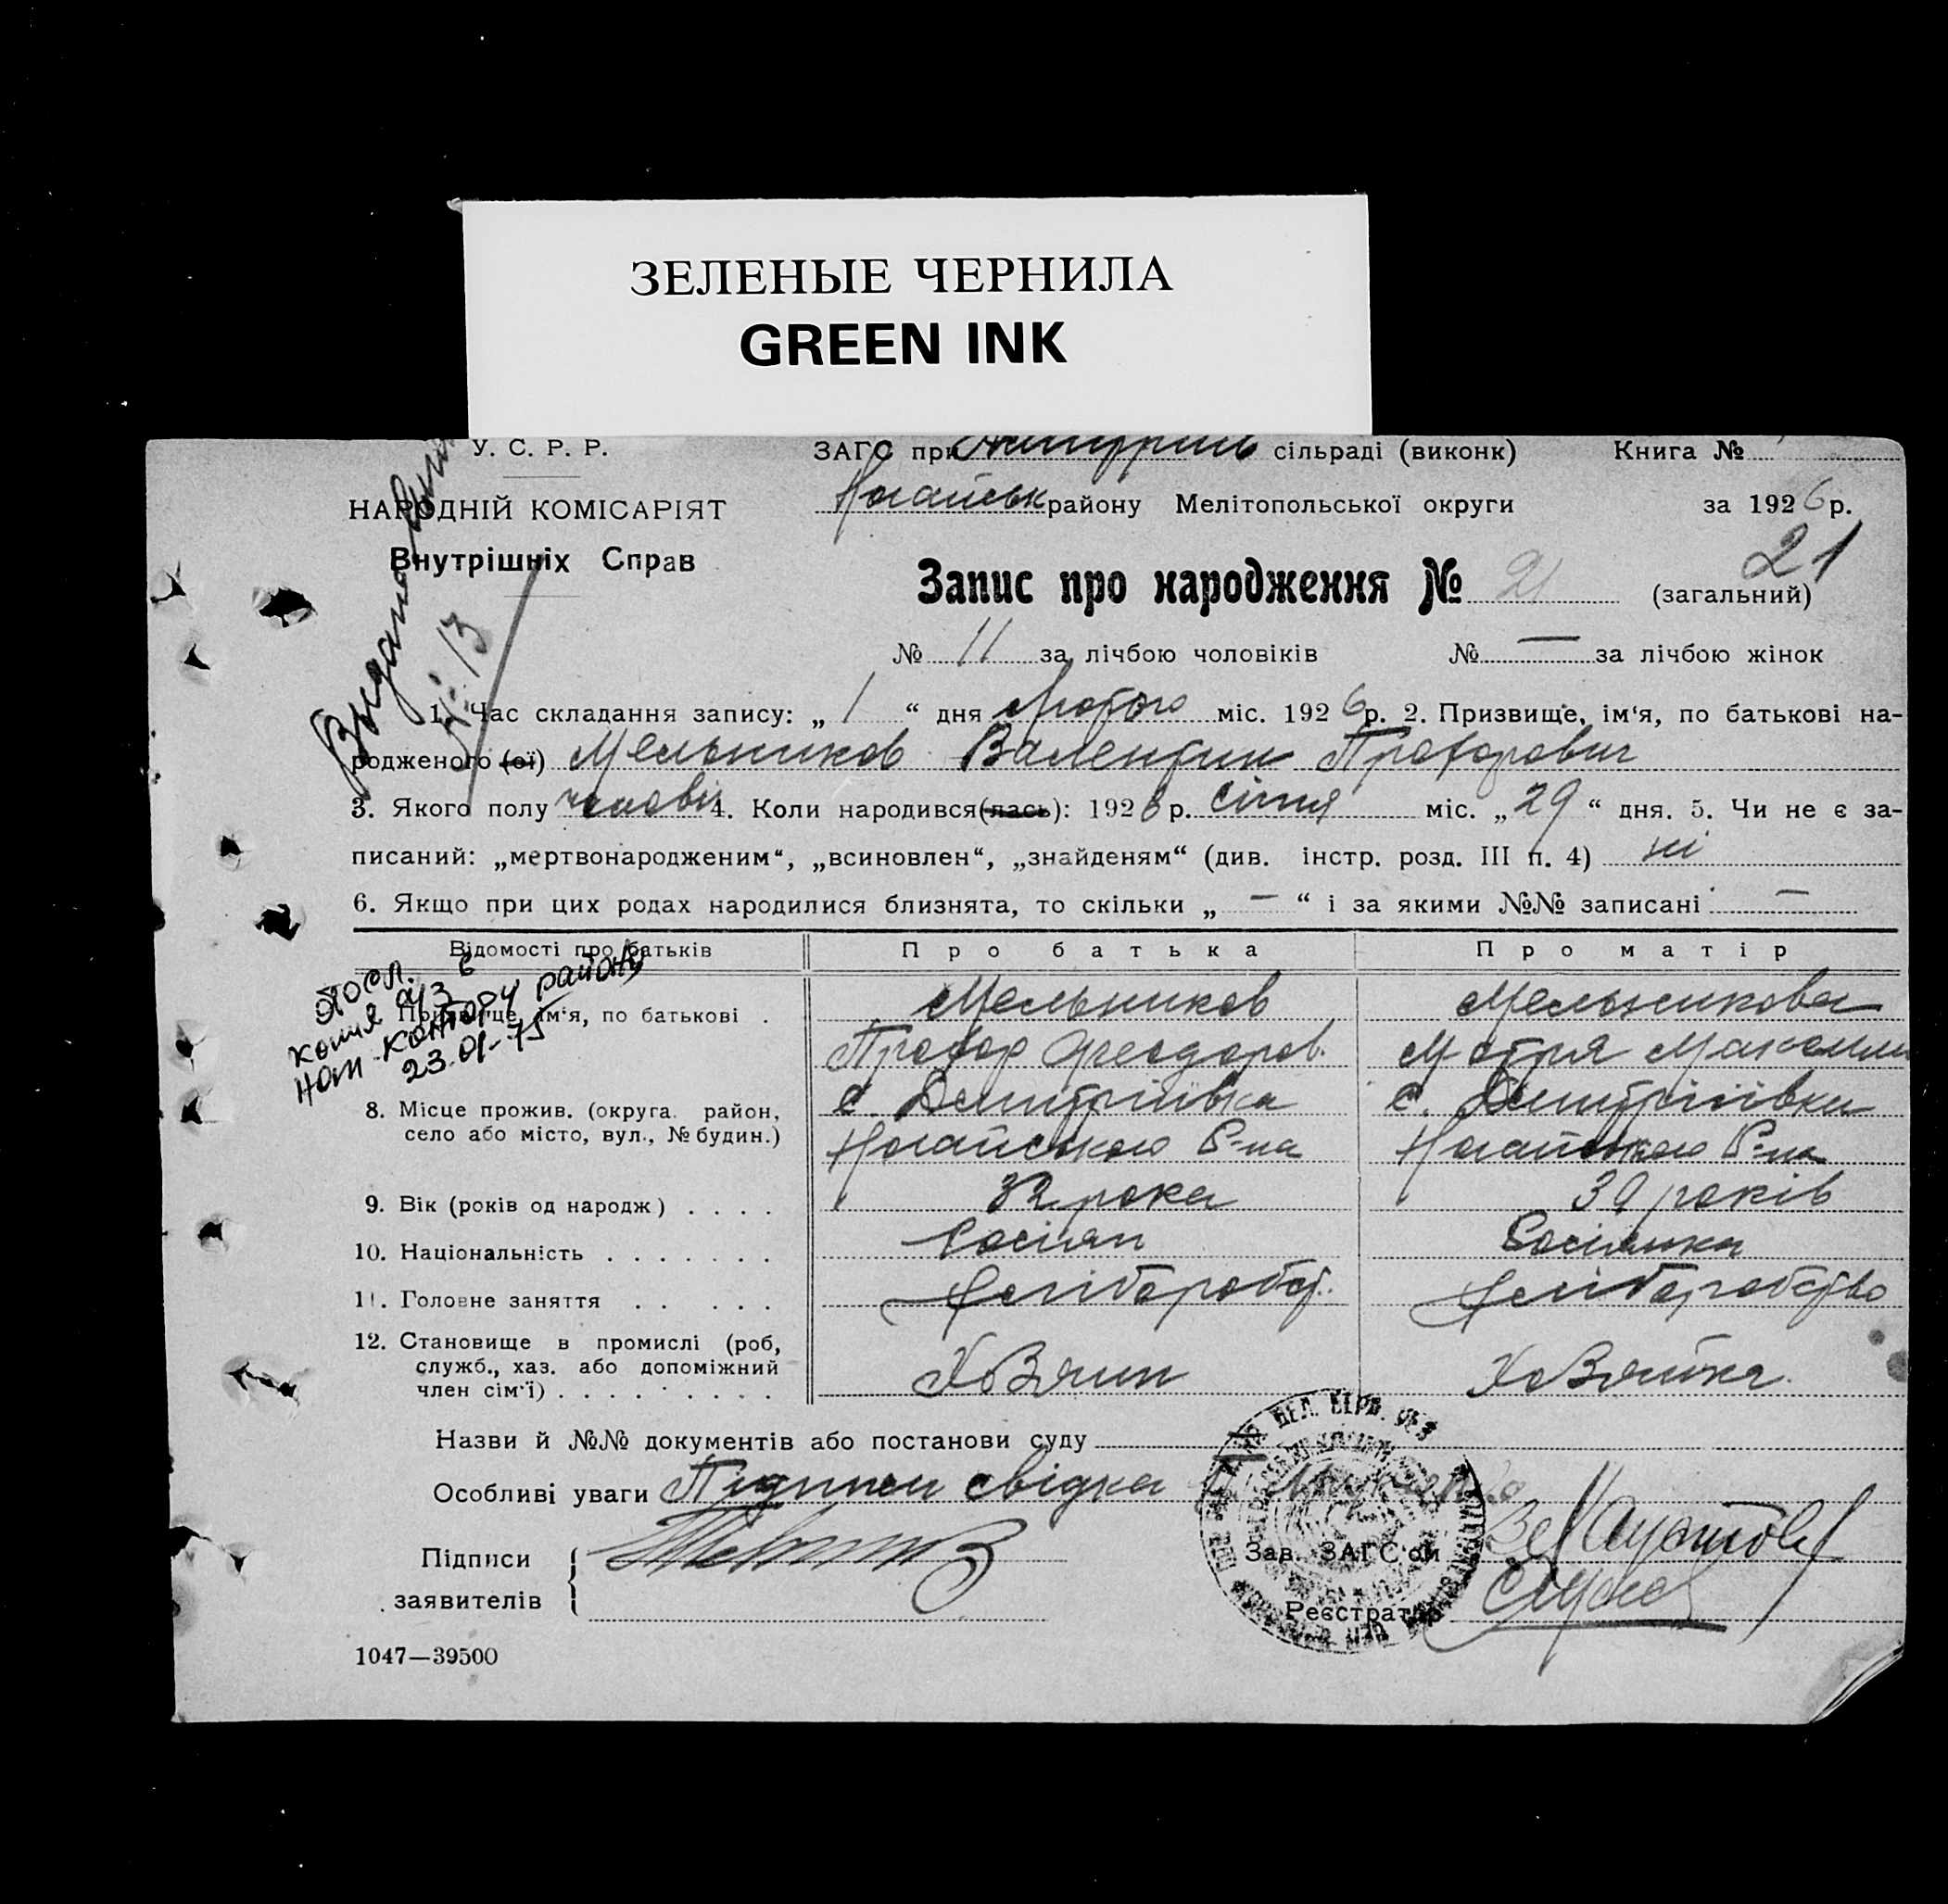 ЗЕЛЕНЫЕ ЧЕРНИЛА
GREEN INK
У. С. Р. Р.
НАРОДНІЙ КОМІСАРІЯТ
Внутрішніх Справ
ЗАГС при сільраді (виконк) Книга №
Ногайськ району Мелітопольської округи за 1926 р.
21
Запис про народження № 21 (загальний)
№ 11 за лічбою чоловіків № — за лічбою жінок
Выдано
№ 13
1. Час складання запису: „ 1 “ дня Лютого міс. 1926 р. 2. Призвище, ім‘я, по батькові на-
родженого (ої) Мельников Валентин Прохорович
3. Якого полу чолові 4. Коли народився(лась): 1926 р. січня міс. „ 29 “ дня. 5. Чи не є за-
писаний: „мертвонародженим“, „всиновлен“, „знайденям“ (див. інстр. розд. III п. 4) ні
6. Якщо при цих родах народилися близнята, то скільки „ — “ і за якими №№ записані —
Відомості про батьків Про батька Про матір
посл.
копія а/з в
нот контору района
23.01-75
Призвище, ім‘я, по батькові .
Мельников
Прохор Феодоров.
Мельникова
Мотря Максим
8. Місце прожив. (округа район,
село або місто, вул., № будин.)
с. Дмитріївка
Ногайского Р-на
с. Дмитріївка
Ногайского Р-на
9. Вік (років од народж) . . . . 32 рока 39 років
10. Національність . . . . . . . Росіян Росіянка
11. Головне заняття . . . . . Хліборобст. Хліборобство
12. Становище в промислі (роб,
служб., хаз. або допоміжний
член сім‘ї) . . . . . . . . . Хозяин Хозяйка.
Назви й №№ документів або постанови суду
Особливі уваги Підписи свідка
Підписи
заявителів
Зав. ЗАГС‘ом
Реєстратор
1047—39500